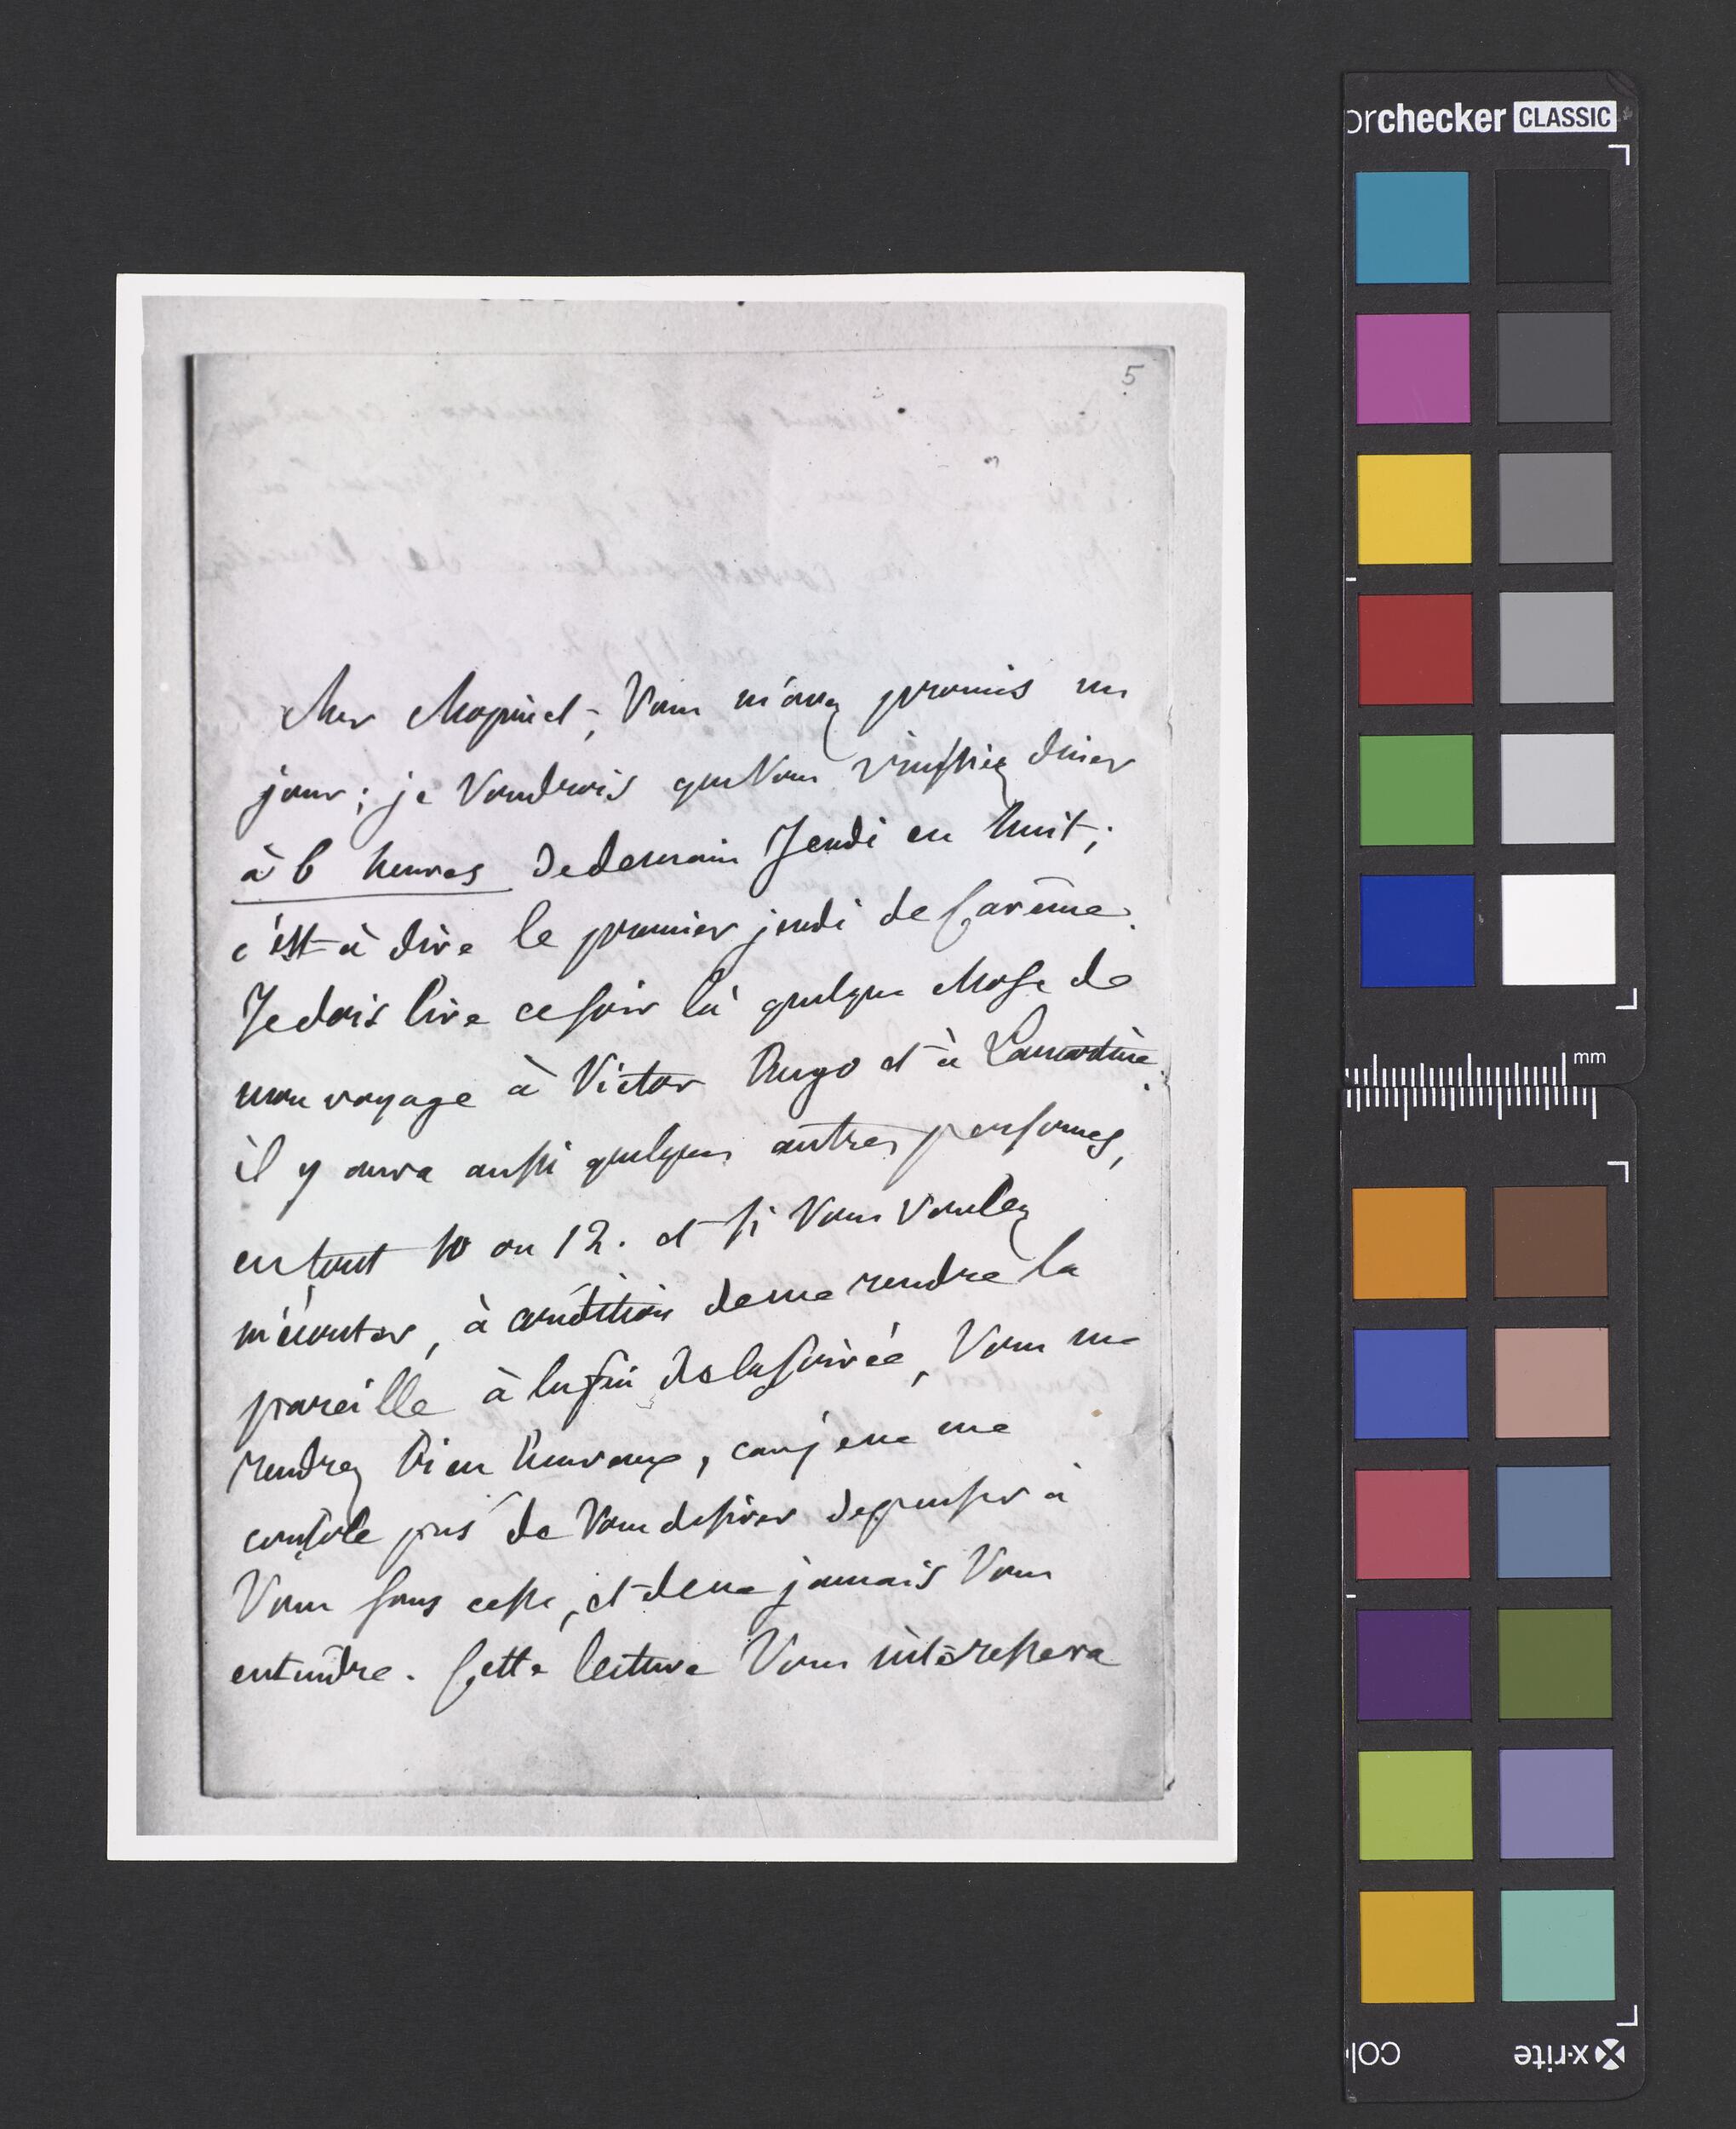 orchecker CLASSIC
5
cher chopin et, Vous m'avez promis un
jour ; je Voudrois que Vous vinssiez diner
à 6 heures de demain Jeudi en huit ;
c'est à dire le premier jeudi de Carême.
Je dois lire ce soir là quelque chose de
mon voyage à Victor hugo et à Lamartine.
il y aura aussi quelques autres personnes,
en tout 10 ou 12. et si Vous voulez
m'écouter, à condition de me rendre la
pareille à la fin de la soirée, Vous me
rendrez bien heureux, car je ne me
console pas de Vous desirer de penser à
Vous sans cesse, et de ne jamais Vous
entendre. Cette lecture Vous intéressera
mm
x-rite
col